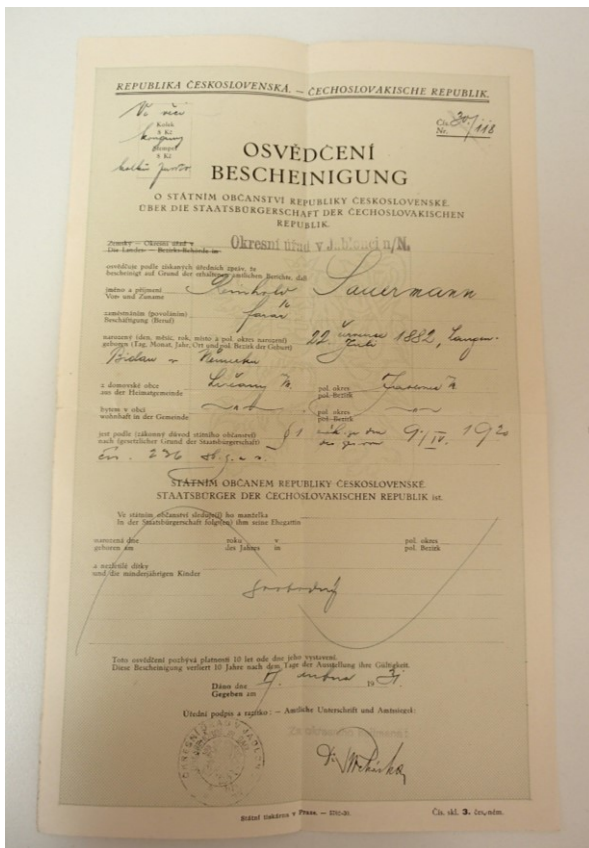 REPUBLIKA ČESKOSLOVENSKÁ. — ČECHOSLOVAKISCHE REPUBLIK.
Kolek
8 Kč
Stempel
8 Kč
Čís.
Nr.
OSVĚDČENÍ
BESCHEINIGUNG
O STÁTNÍM OBČANSTVÍ REPUBLIKY ČESKOSLOVENSKÉ.
ÜBER DIE STAATSBÜRGERSCHAFT DER ČECHOSLOVAKISCHEN
REPUBLIK.
Zemský — Okresní úřad v Okresní úřad v Jablonci n/N.
Die Landes- — Bezirks-Behörde in
osvědčuje podle získaných úředních zpráv, že
bescheinigt auf Grund der erhaltenen amtlichen Berichte, daß
jméno a příjmení Reinhold Sauermann
Vor- und Zuname
zaměstnání (povolání) farář
Beschäftigung (Beruf)
narozený (den, měsíc, rok, místo a pol. okres narození) 22. července 1882,
geboren (Tag, Monat, Jahr, Ort und pol. Bezirk der Geburt) Juli
Bielau v Německu
z domovské obce pol. okres
aus der Heimatgemeinde pol. Bezirk
bytem v obci pol. okres
wohnhaft in der Gemeinde pol. Bezirk
jest podle (zákonný důvod státního občanství) § 1 9./IV. 1920
nach (gesetzlicher Grund der Staatsbürgerschaft)
čís. 236 Sb. z. a n.
STÁTNÍM OBČANEM REPUBLIKY ČESKOSLOVENSKÉ.
STAATSBÜRGER DER ČECHOSLOVAKISCHEN REPUBLIK ist.
Ve státním občanství sleduje(í) ho manželka
In der Staatsbürgerschaft folgt(en) ihm seine Ehegattin
narozená dne roku v pol. okres
geboren am des Jahres in pol. Bezirk
a nezletilé dítky
und die minderjährigen Kinder
svobodný
Toto osvědčení pozbývá platnosti 10 let ode dne jeho vystavení.
Diese Bescheinigung verliert 10 Jahre nach dem Tage der Ausstellung ihre Gültigkeit.
Dáno dne 1931.
Gegeben am
Úřední podpis a razítko: — Amtliche Unterschrift und Amtssiegel:
Státní tiskárna v Praze.
Čís. skl. 3. čes.-něm.